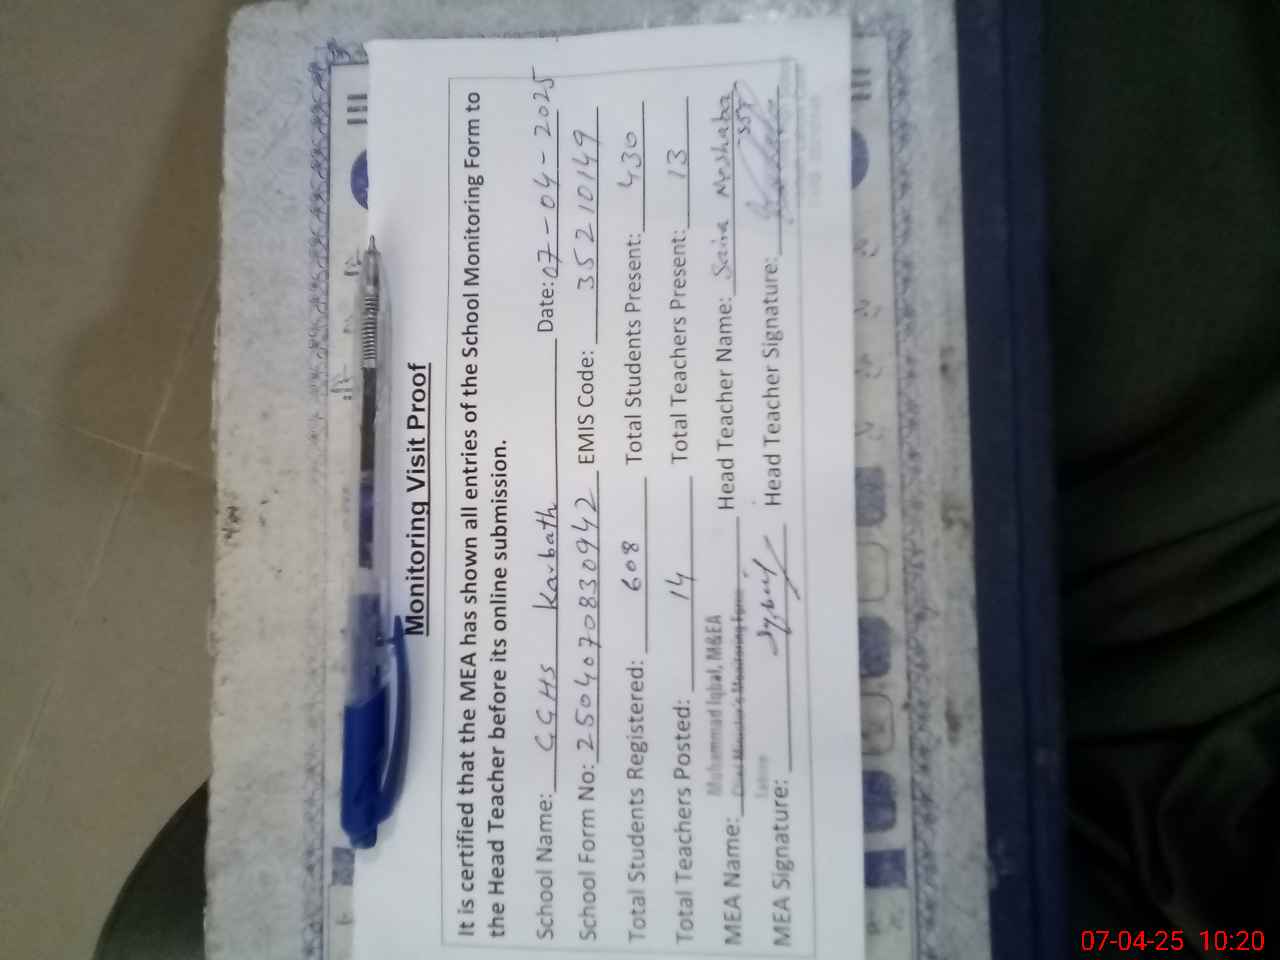 Monitoring Visit Proof
It is certified that the MEA has shown all entries of the School Monitoring Form to
the Head Teacher before its online submission.
School Name: GGHS Karbath Date: 07-04-2025
School Form No: 2504070830942 EMIS Code: 35210149
Total Students Registered: 608 Total Students Present: 430
Total Teachers Posted: 14 Total Teachers Present: 13
Muhammad Iqbal, M&EA
MEA Name: Chief Minister's Monitoring Force Head Teacher Name: Saira
SST
MEA Signature: Head Teacher Signature:
07-04-25 10:20